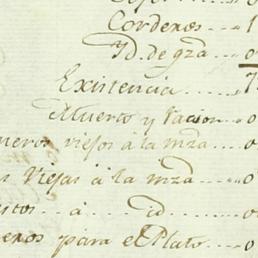 Corderos .. 1
Yd. de gza .. 0
Existencia ..... 7
Muerto y racion .. 0
neros viejos á la mza ... 0
s Viejas á la mza .... 0
á ... id ..... 0
para el Plato .. 0